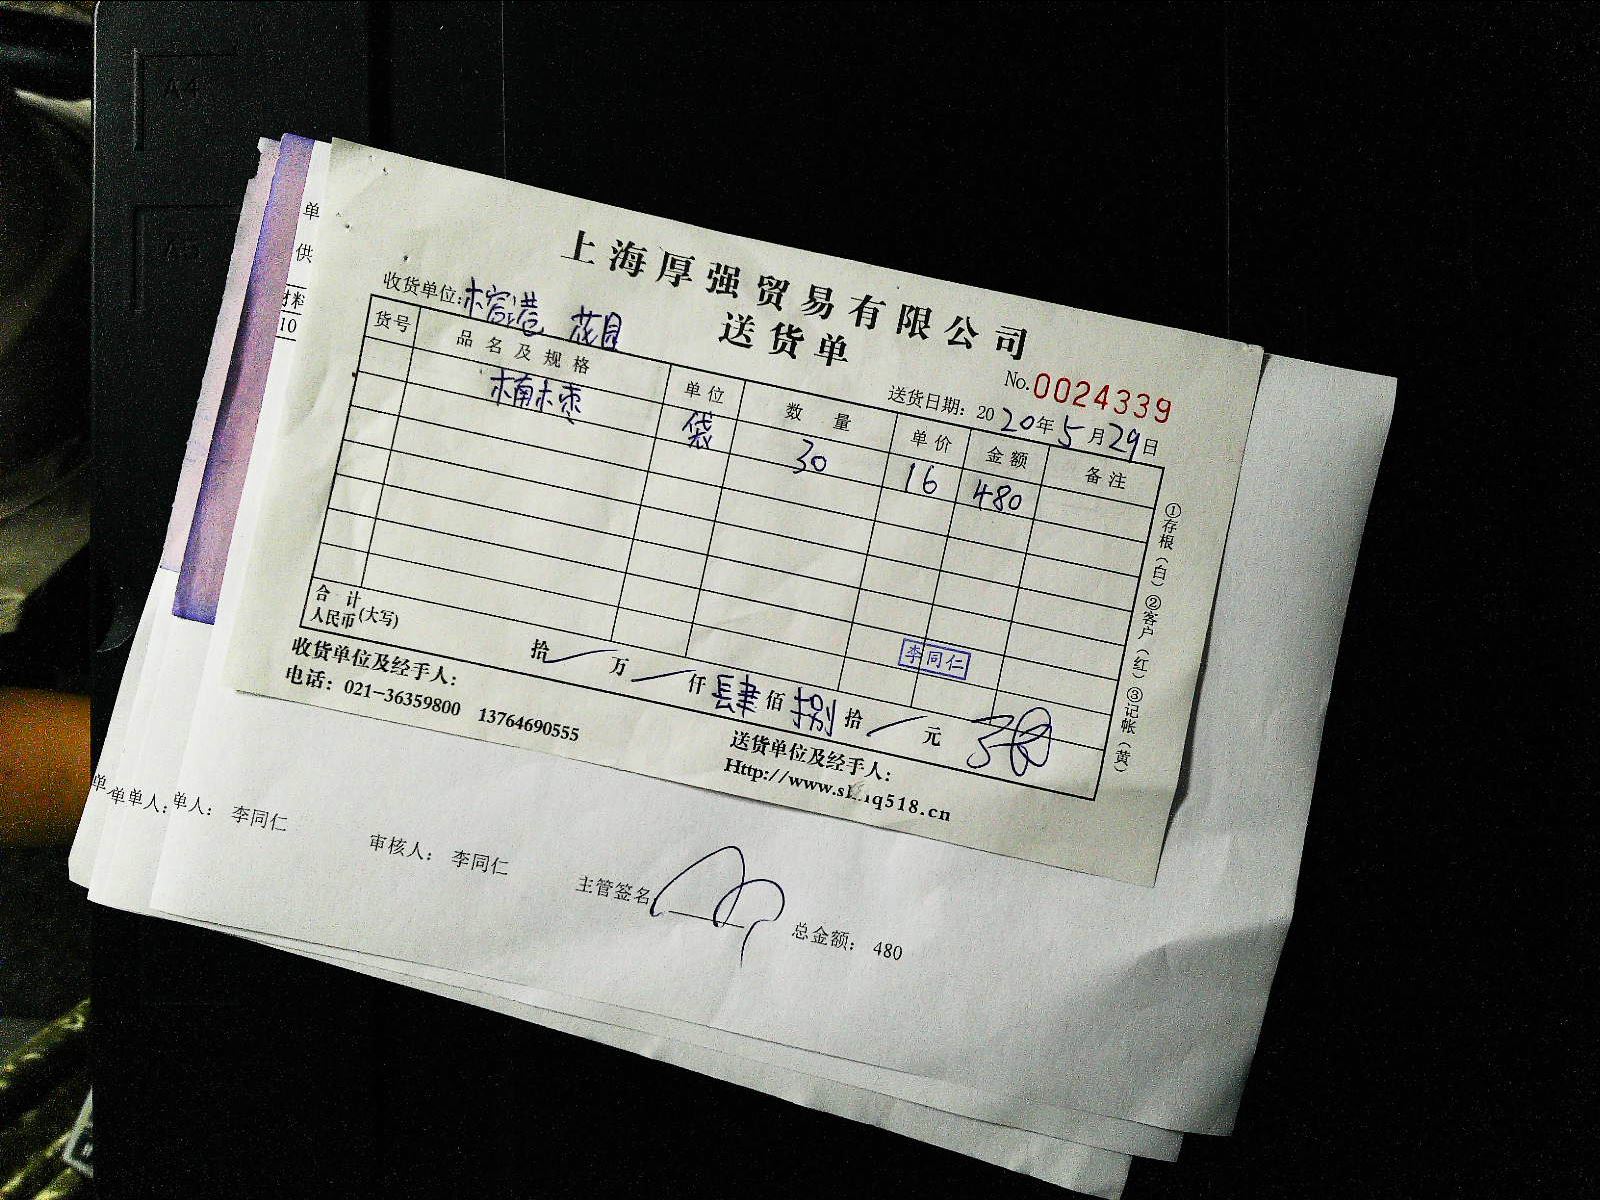 A4
A5
单
供
材料
10
上海厚强贸易有限公司
送货单
收货单位: 花园
No. 0024339
送货日期: 2020年5月29日
货号 品名及规格 单位 数量 单价 金额 备注
袋 30 16 480
李同仁
合计
人民币(大写) 拾 万 仟 肆 佰 捌 拾 元
收货单位及经手人:
电话: 021-36359800 13764690555
送货单位及经手人:
①存根(白) ②客户(红) ③记帐(黄)
单 单单人: 单人: 李同仁 审核人: 李同仁 主管签名 总金额: 480